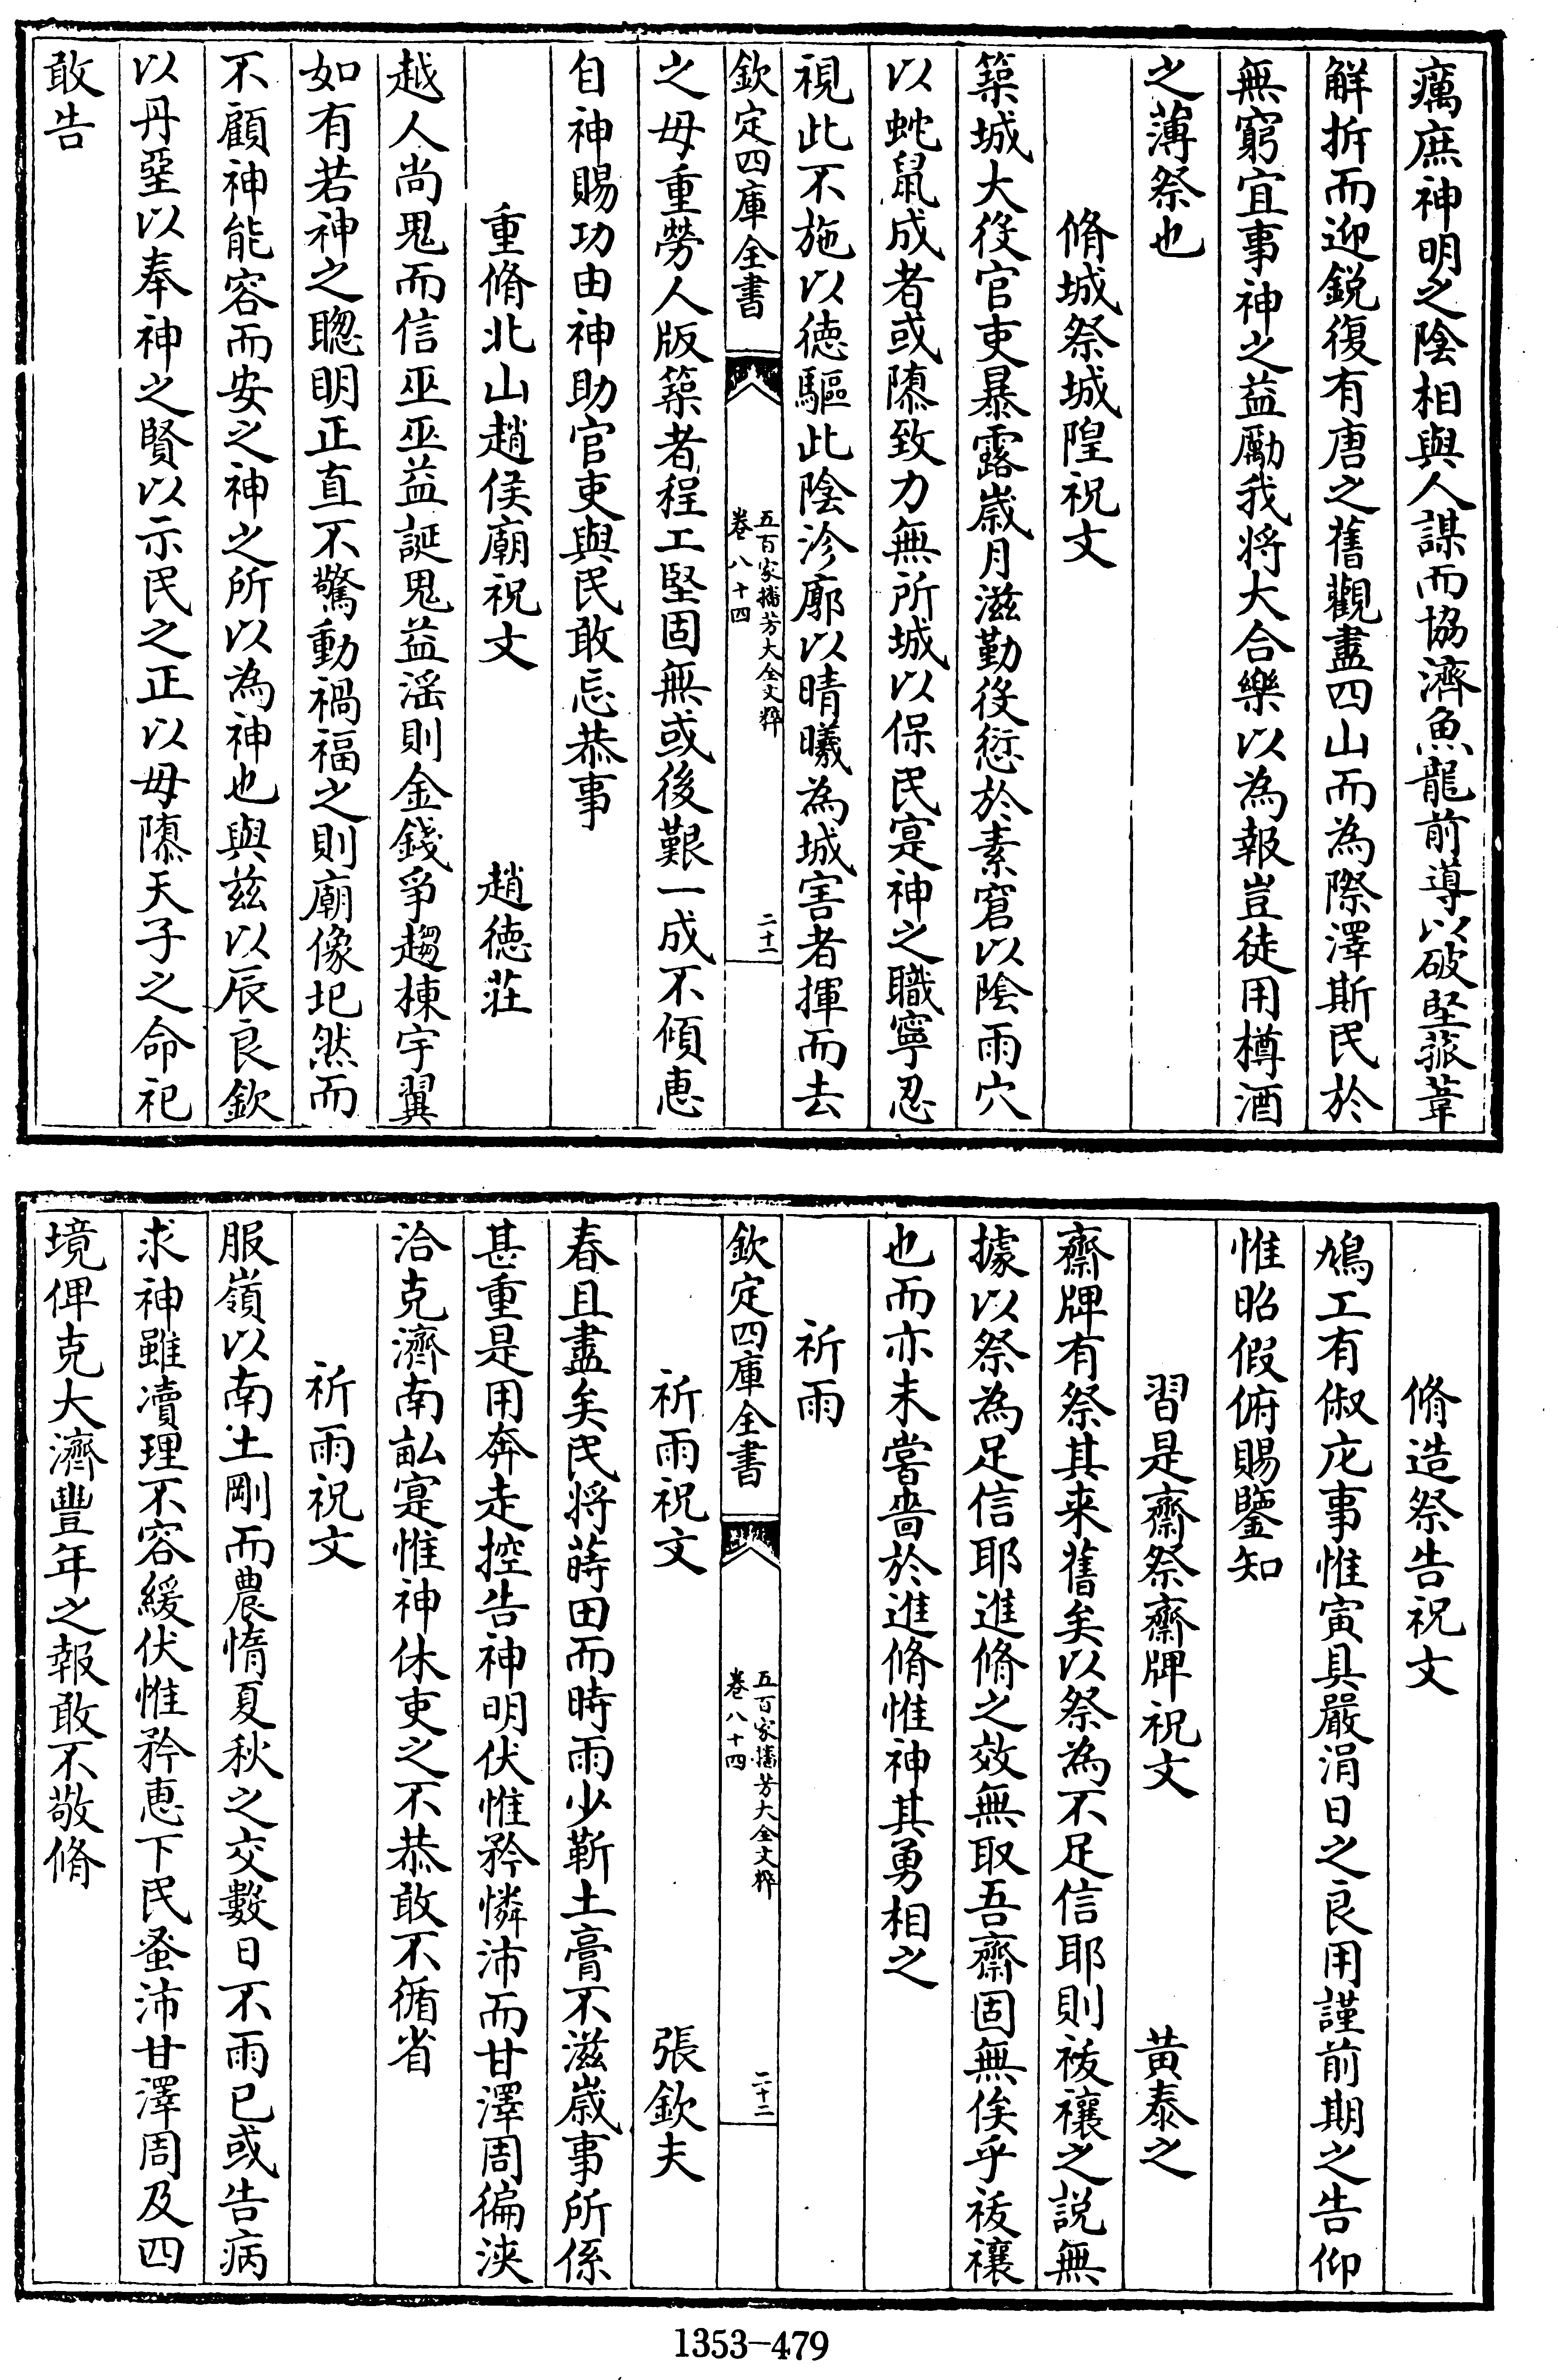 癘庶神明之陰相與人謀而協濟魚龍前導以破堅菰葦
解拆而迎鋭復有唐之舊觀盡四山而為際澤斯民於
無窮宜事神之益勵我将大合樂以為報豈徒用樽酒
之薄祭也
脩城祭城隍祝文
築城大役官吏暴露嵗月滋勤役愆於素窘以陰雨穴
以蛇鼠成者或隳致力無所城以保民寔神之職寧忍
視此不施以徳驅此陰沴廓以晴曦為城害者揮而去
欽定四庫全書
五百家播芳大全文粹
卷八十四
二十一
之毋重勞人版築者程工堅固無或後艱一成不傾惠
自神賜功由神助官吏與民敢忘恭事
重脩北山趙侯廟祝文
趙徳莊
越人尚鬼而信巫巫益誕鬼益滛則金錢爭趨棟宇翼
如有若神之聰明正直不驚動禍福之則廟像圯然而
不顧神能容而安之神之所以為神也與兹以辰良欽
以丹堊以奉神之賢以示民之正以毋隳天子之命祀
敢告
脩造祭告祝文
鳩工有俶庀事惟寅具嚴涓日之良用謹前期之告仰
惟昭假俯賜鑒知
習是齋祭齋牌祝文
黄泰之
齋牌有祭其来舊矣以祭為不足信耶則祓禳之説無
據以祭為足信耶進脩之效無取吾齋固無俟乎祓禳
也而亦未嘗嗇於進脩惟神其勇相之
祈雨
欽定四庫全書
五百家播芳大全文粹
卷八十四
二十二
祈雨祝文
張欽夫
春且盡矣民将蒔田而時雨少靳土膏不滋嵗事所係
甚重是用奔走控告神明伏惟矜憐沛而甘澤周徧浹
洽克濟南畝寔惟神休吏之不恭敢不循省
祈雨祝文
服嶺以南土剛而農惰夏秋之交數日不雨已或告病
求神雖凟理不容緩伏惟矜惠下民蚤沛甘澤周及四
境俾克大濟豐年之報敢不敬脩
1353-479